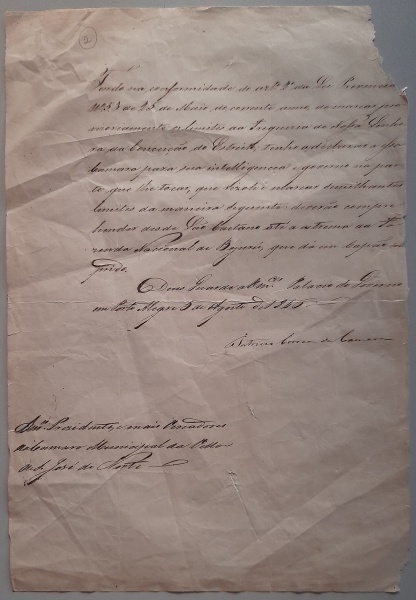 2
Tendo na conformidade do artº 2º da Lei Provincial
Nº 33 de 23 de Maio do corrente anno, de marcar pro
visoriamente os limites da Freguezia de Nossa Senhora
da Conceição do Estreito, tenho a declarar a essa
Camara para sua intelligencia e governo na par
te que lhe toca, que resolvi marcar semelhantes
limites da maneira seguinte: deverão compre
hender desde São Caetano até a extrema da Fa
zenda Nacional de Bujurú, que dá no Capão
Deus Guarde a Vmcês Palacio do Governo
em Porto Alegre 5 de Agosto de 1846
Patricio Correa da Camara
Snrs. Presidente, e mais Vereadores
da Camara Municipal da Villa
de S. José do Norte